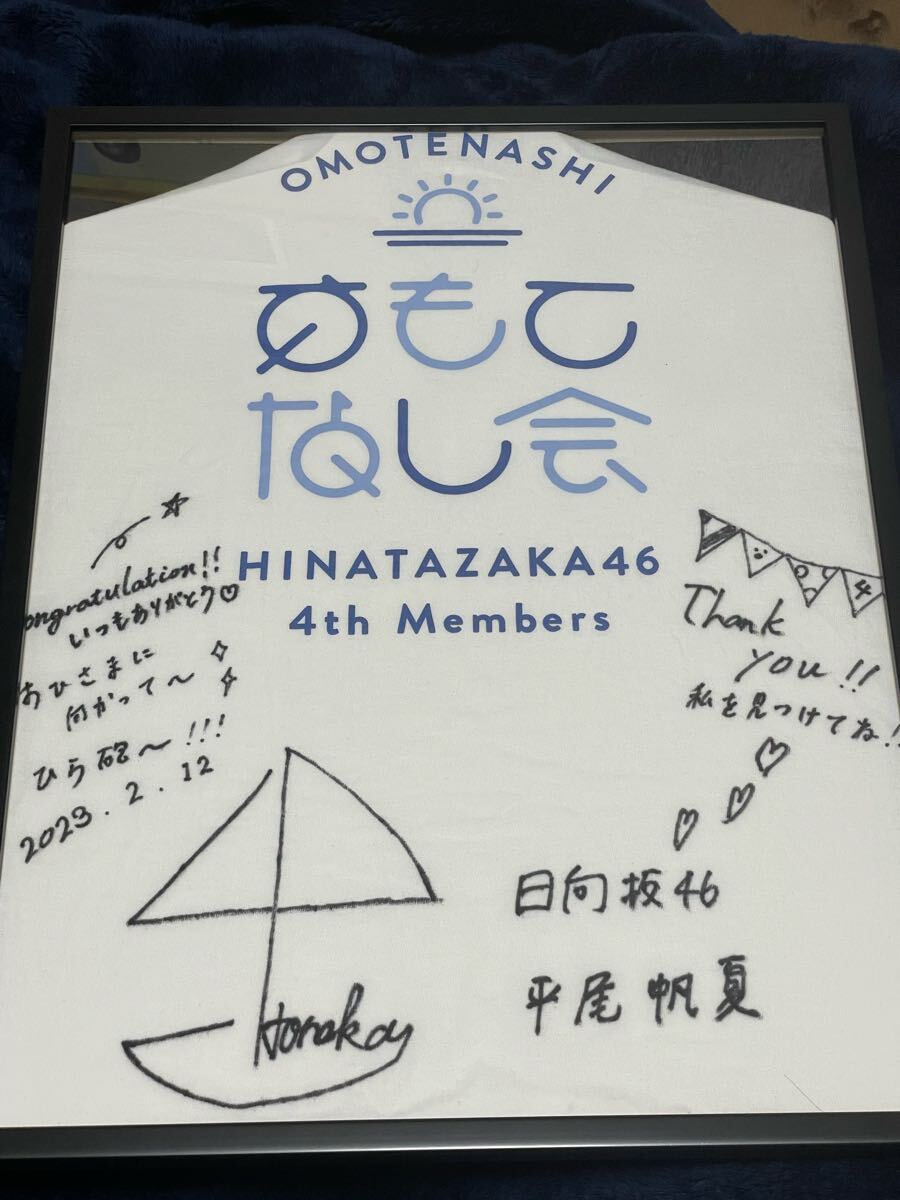 OMOTENASHI
おもて
なし会
HINATAZAKA46
4th Members
Congratulation!!
いつもありがとう♡
おひさまに
向かって〜
ひら砲〜!!!
2023.2.12
4
Thank
you!!
私を見つけてね!!
Honoka
日向坂46
平尾帆夏